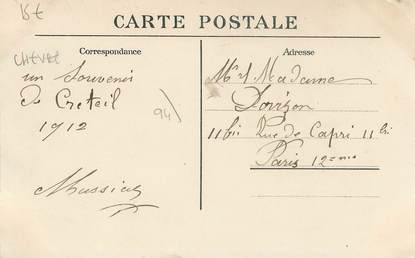 15€
CARTE POSTALE
Correspondance
Adresse
CHEVAL
un Souvenir
de Creteil
1912
94
Mr et Madame
11bis Rue de Capri 11bis
Paris 12eme